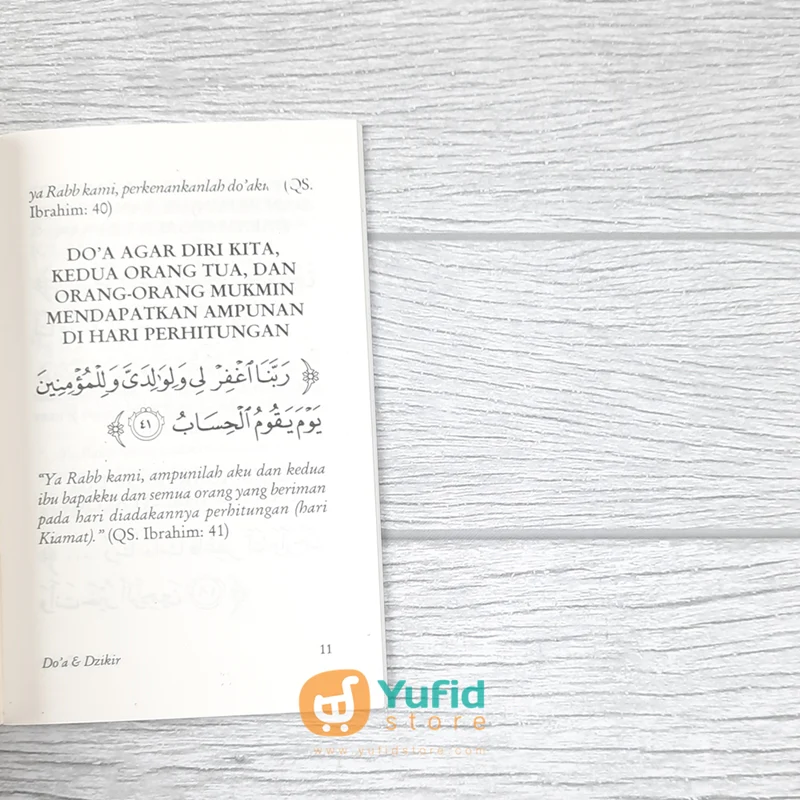 ya Rabb kami, perkenankanlah do'aku (QS.
Ibrahim: 40)
DO'A AGAR DIRI KITA,
KEDUA ORANG TUA, DAN
ORANG-ORANG MUKMIN
MENDAPATKAN AMPUNAN
DI HARI PERHITUNGAN
﴿ رَبَّنَا ٱغْفِرْ لِى وَلِوَٰلِدَىَّ وَلِلْمُؤْمِنِينَ
يَوْمَ يَقُومُ ٱلْحِسَابُ ٤١ ﴾
"Ya Rabb kami, ampunilah aku dan kedua
ibu bapakku dan semua orang yang beriman
pada hari diadakannya perhitungan (hari
Kiamat)." (QS. Ibrahim: 41)
Do'a & Dzikir
11
Yufid
store
www.yufidstore.com